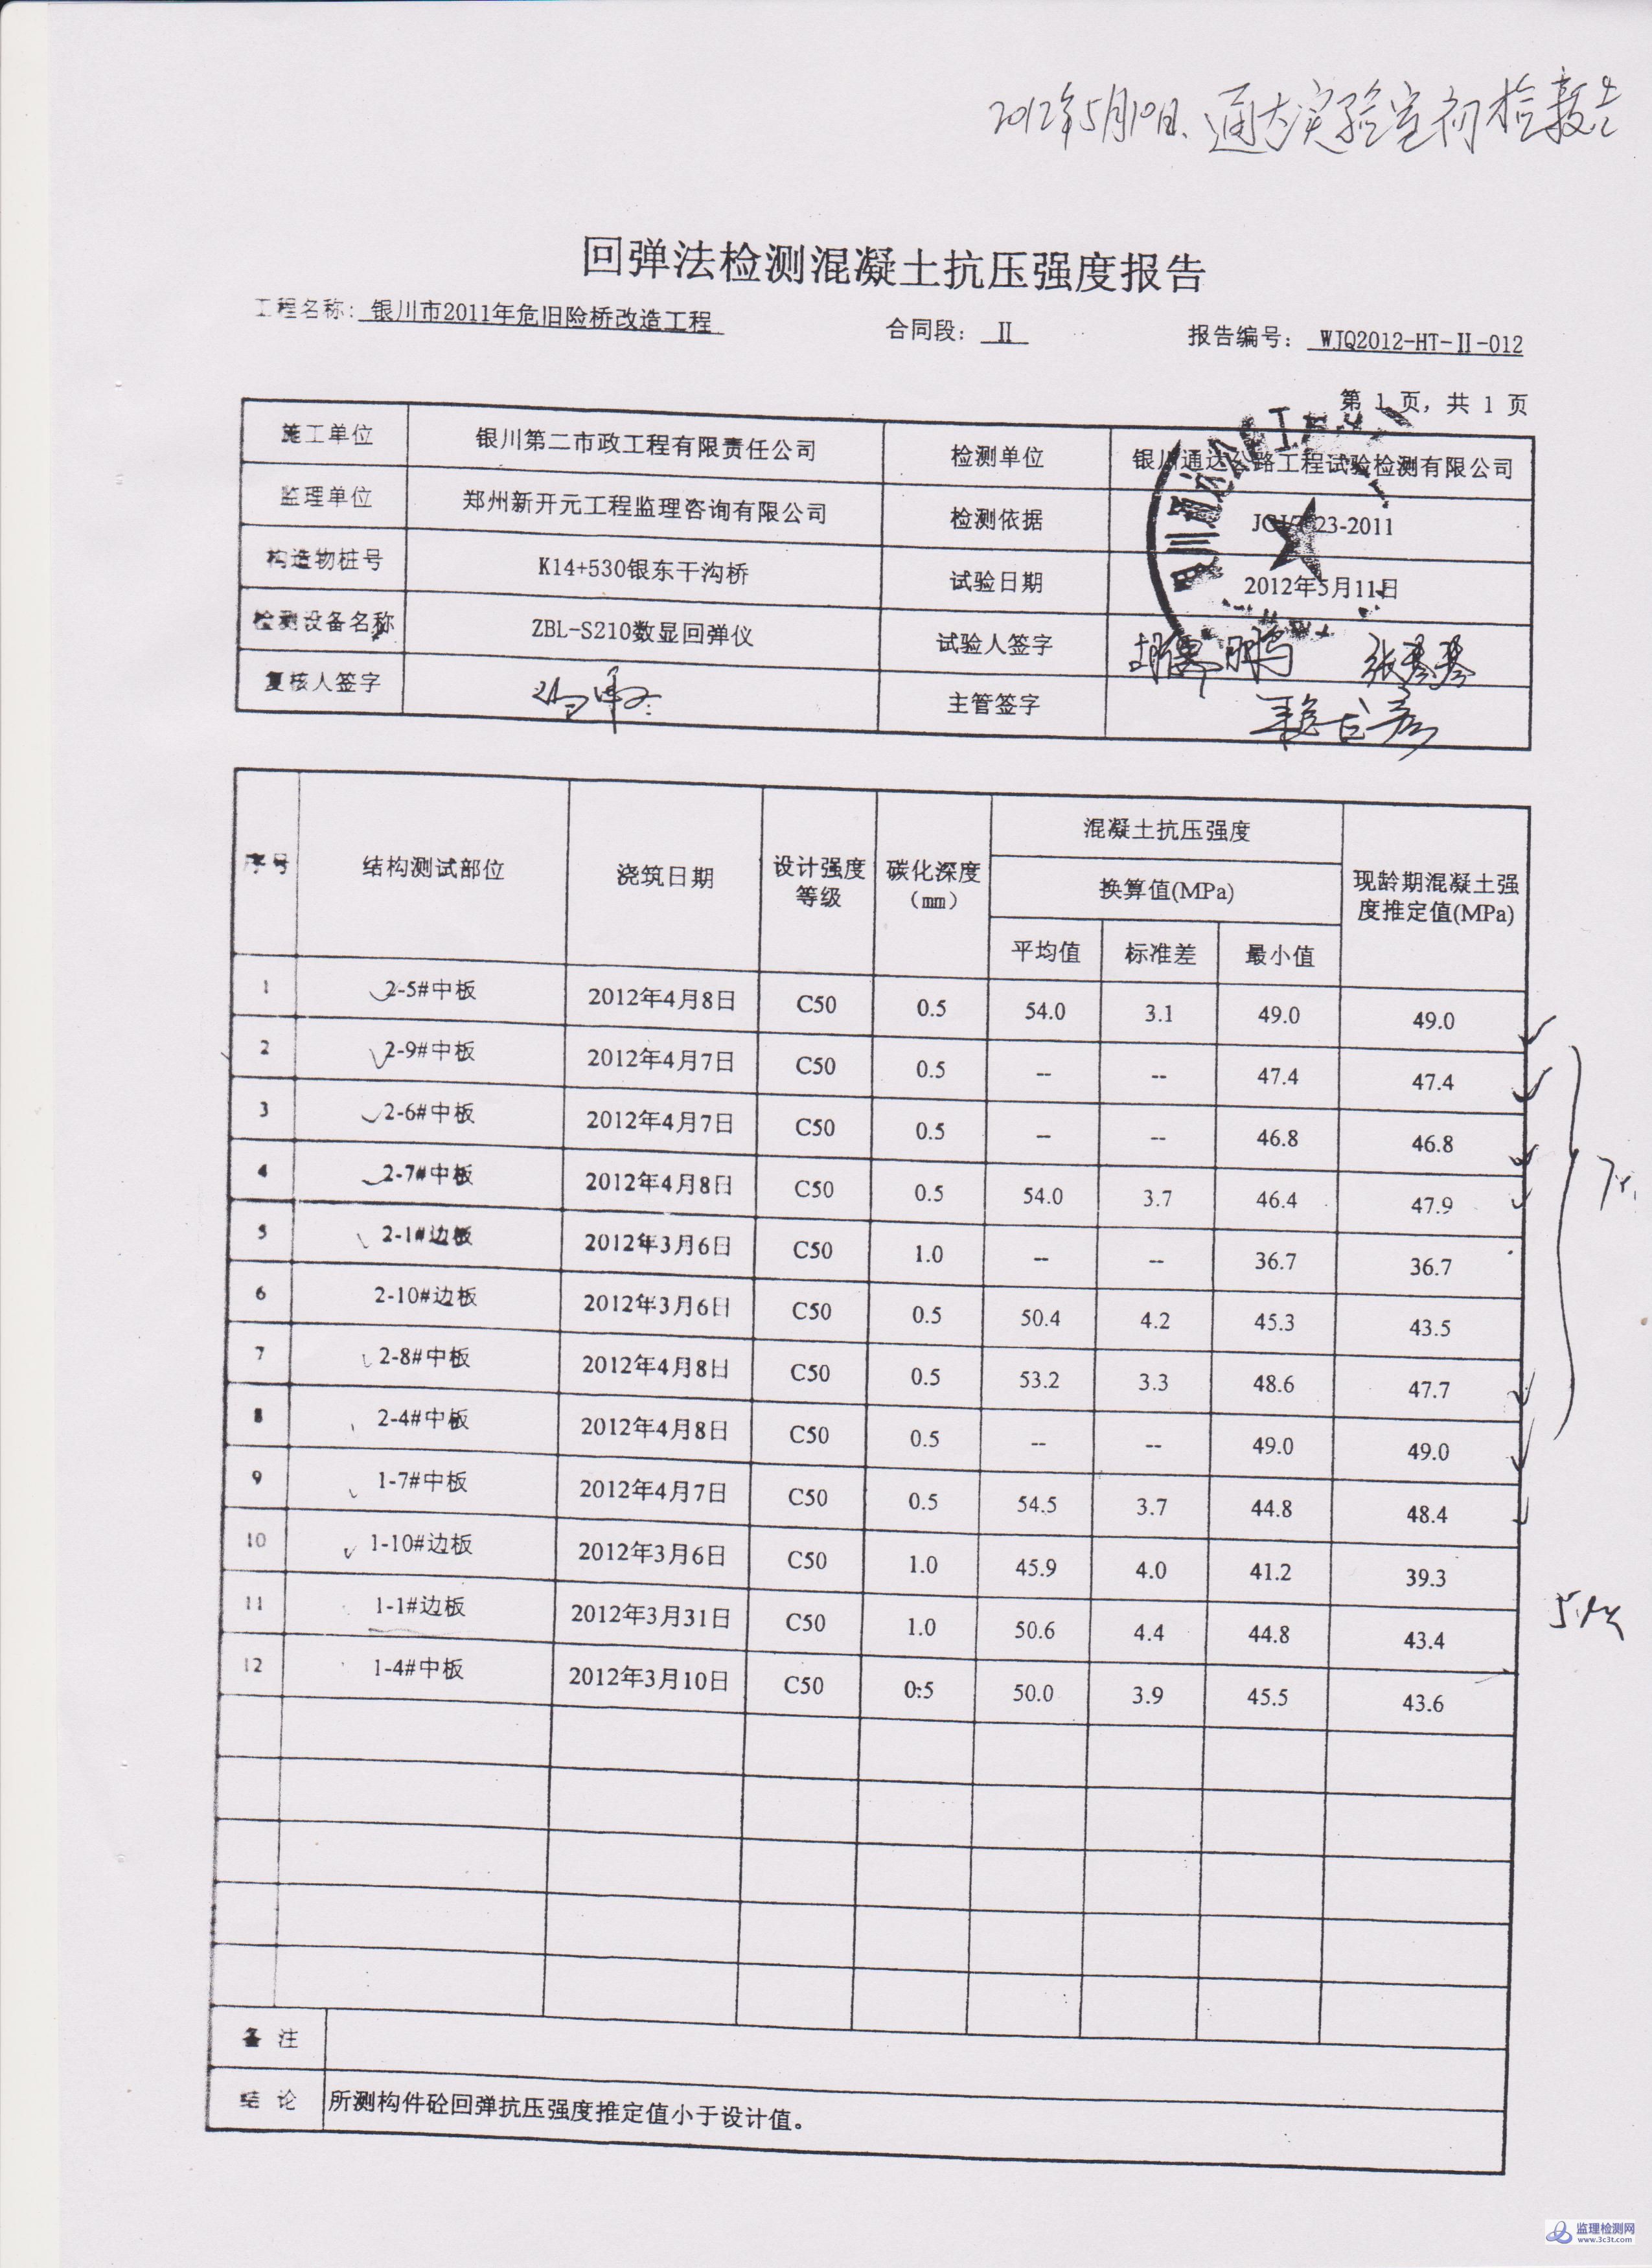 2012年5月10日、通大实验室初检报告
回弹法检测混凝土抗压强度报告
工程名称: 银川市2011年危旧险桥改造工程 合同段: Ⅱ 报告编号: WJQ2012-HT-Ⅱ-012
第 1 页, 共 1 页
施工单位 银川第二市政工程有限责任公司 检测单位 银川通达公路工程试验检测有限公司
监理单位 郑州新开元工程监理咨询有限公司 检测依据 JGJ/T23-2011
构造物桩号 K14+530银东干沟桥 试验日期 2012年5月11日
检测设备名称 ZBL-S210数显回弹仪 试验人签字 张琴琴
复核人签字 主管签字
序号 结构测试部位 浇筑日期 设计强度等级 碳化深度(mm) 混凝土抗压强度 现龄期混凝土强度推定值(MPa)
换算值(MPa)
平均值 标准差 最小值
1 2-5#中板 2012年4月8日 C50 0.5 54.0 3.1 49.0 49.0
2 2-9#中板 2012年4月7日 C50 0.5 -- -- 47.4 47.4
3 2-6#中板 2012年4月7日 C50 0.5 -- -- 46.8 46.8
4 2-7#中板 2012年4月8日 C50 0.5 54.0 3.7 46.4 47.9
5 2-1#边板 2012年3月6日 C50 1.0 -- -- 36.7 36.7
6 2-10#边板 2012年3月6日 C50 0.5 50.4 4.2 45.3 43.5
7 2-8#中板 2012年4月8日 C50 0.5 53.2 3.3 48.6 47.7
8 2-4#中板 2012年4月8日 C50 0.5 -- -- 49.0 49.0
9 1-7#中板 2012年4月7日 C50 0.5 54.5 3.7 44.8 48.4
10 1-10#边板 2012年3月6日 C50 1.0 45.9 4.0 41.2 39.3
11 1-1#边板 2012年3月31日 C50 1.0 50.6 4.4 44.8 43.4
12 1-4#中板 2012年3月10日 C50 0:5 50.0 3.9 45.5 43.6
备 注
结 论 所测构件砼回弹抗压强度推定值小于设计值。
监理检测网
www.3c3t.com